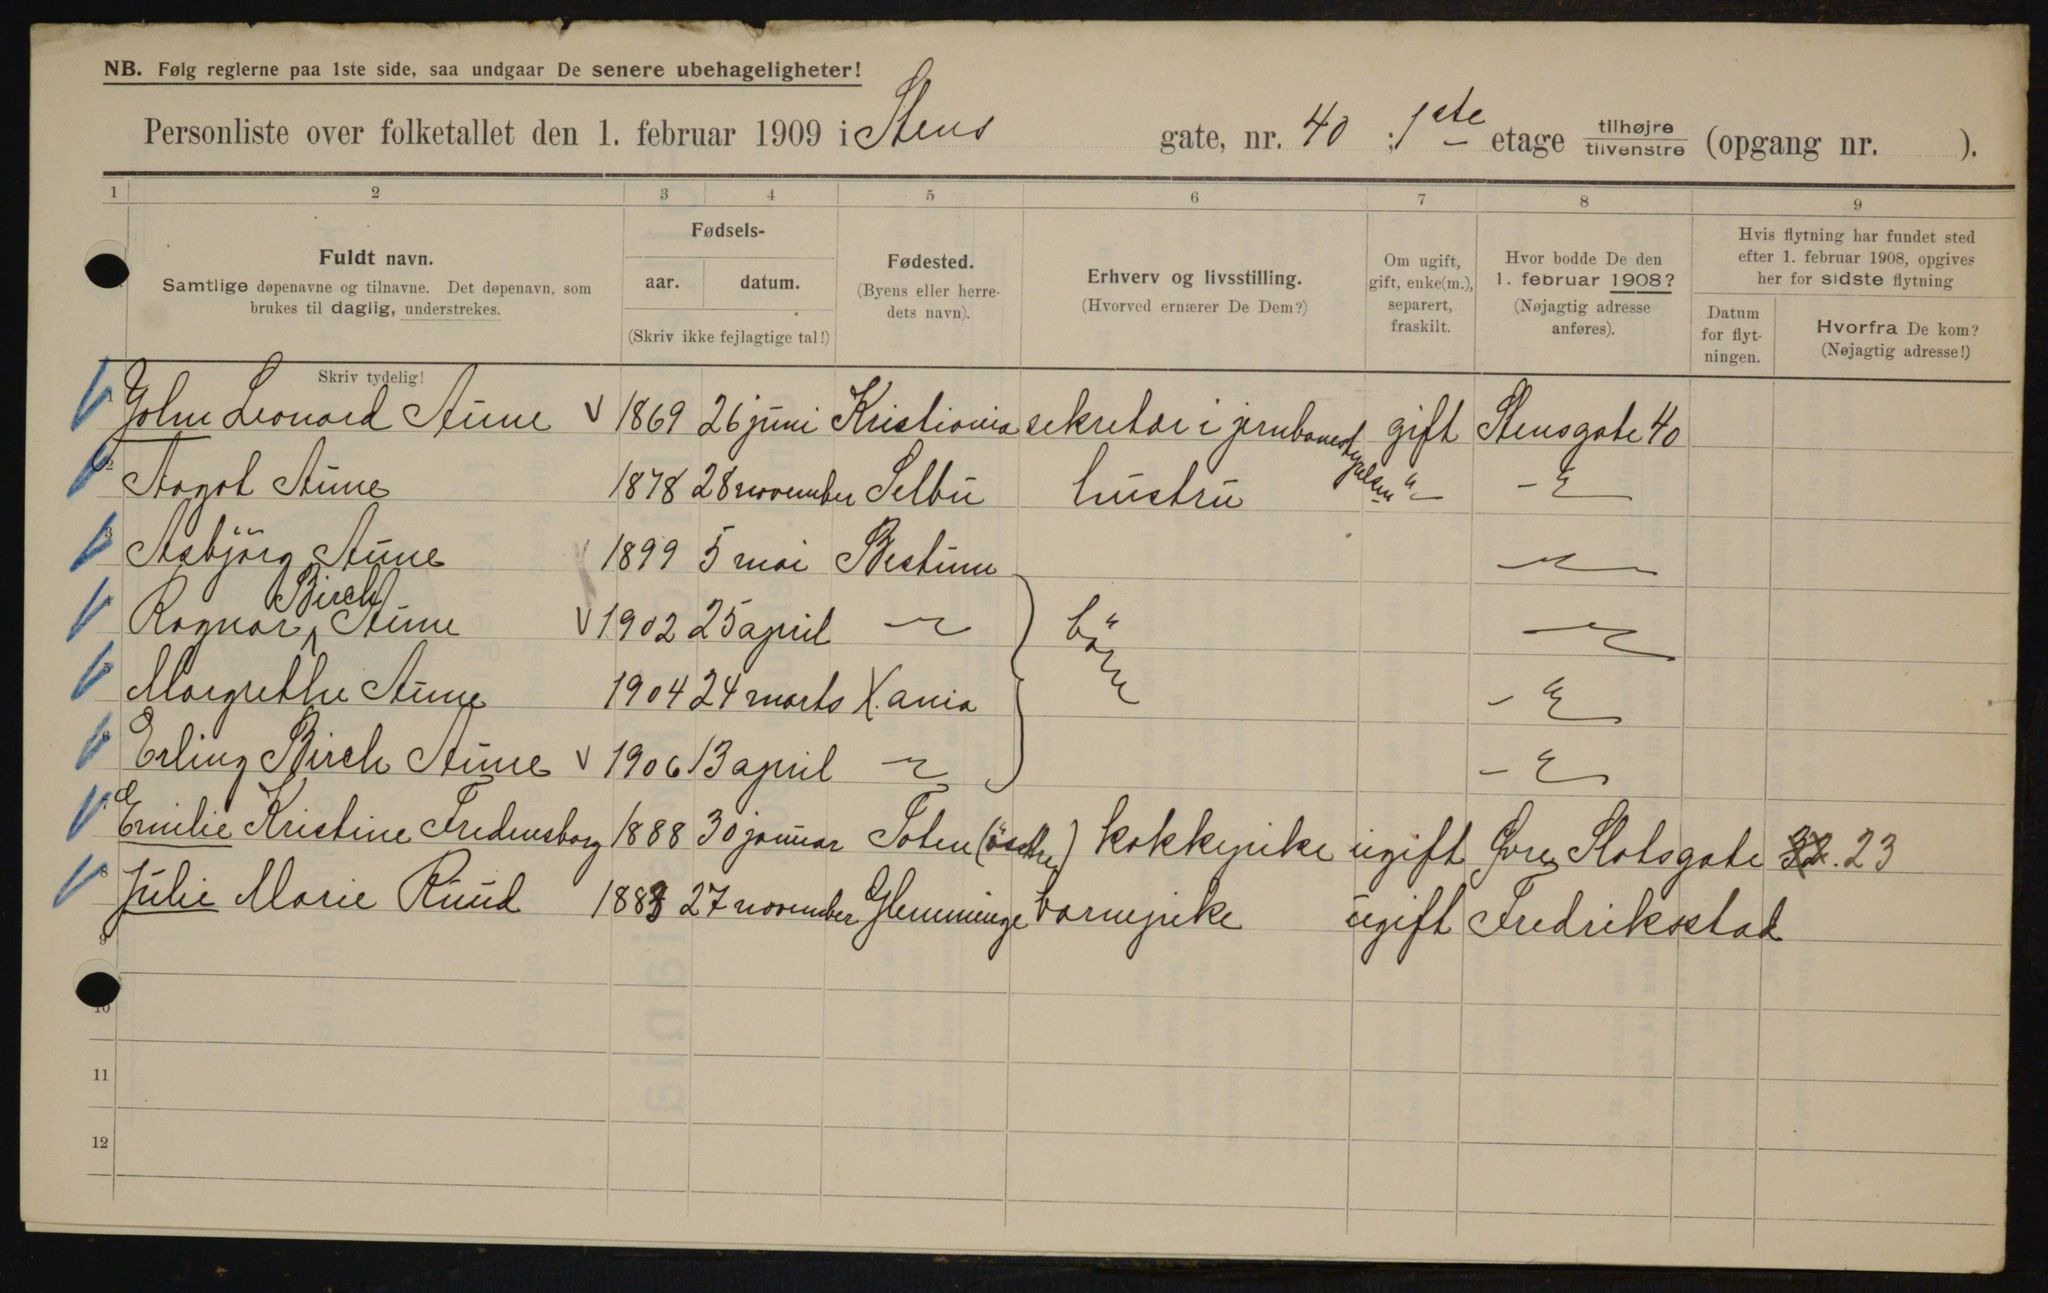 NB. Følg reglerne paa 1ste side, saa undgaar De senere ubehageligheter!
Personliste over folketallet den 1. februar 1909 i Stens gate, nr. 40 ; 1ste etage tilhøjre tilvenstre (opgang nr. ).
1 2 3 4 5 6 7 8 9
Fuldt navn.
Samtlige døpenavne og tilnavne. Det døpenavn, som
brukes til daglig, understrekes.
Skriv tydelig!
Fødsels-
aar. datum.
(Skriv ikke fejlagtige tal!)
Fødested.
(Byens eller herre-
dets navn).
Erhverv og livsstilling.
(Hvorved ernærer De Dem?)
Om ugift,
gift, enke(m.),
separert,
fraskilt.
Hvor bodde De den
1. februar 1908?
(Nøjagtig adresse
anføres).
Hvis flytning har fundet sted
efter 1. februar 1908, opgives
her for sidste flytning
Datum
for flyt-
ningen.
Hvorfra De kom?
(Nøjagtig adresse!)
John Leonard Aune 1869 26 juni Kristiania sekretær i jernbanestyrelsen gift Stensgate 40
2 Aagot Aune 1878 28 november Selbu hustru " — "
3 Asbjörg Aune 1899 5 mai Bestum "
Ragnar Birch Aune 1902 25 april " börn "
Margrethe Aune 1904 24 marts X.ania "
Erling Birch Aune 1906 13 april " "
Emilie Kristine Fredensborg 1888 30 januar Toten (östre) kokkepike ugift Øvre Slotsgate 32. 23
8 Julie Marie Ruud 1883 27 november Glemminge barnepike ugift Fredriksstad
9
10
11
12